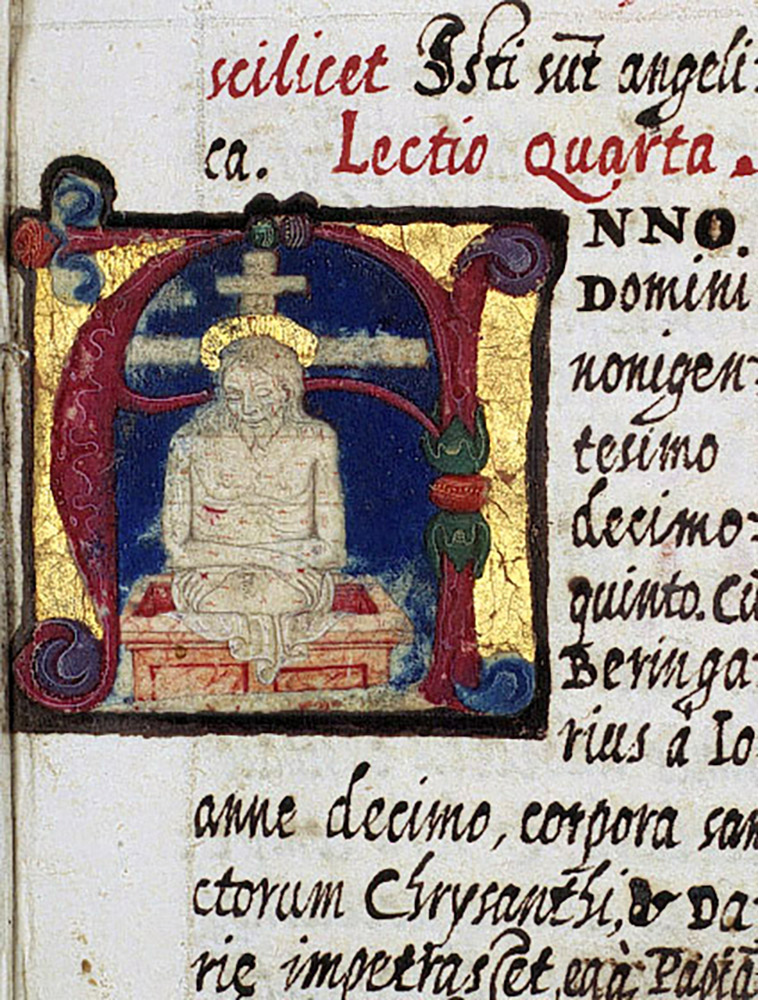 scilicet Isti sūt angeli:
ca. Lectio Quarta.
ANNO.
Domini
nonigen-
tesimo
decimo:
quinto. Cū
Beringa-
rius à Io
anne decimo, corpora san
ctorum Chrysanthi, & Da-
rię impetrasset, eaq́; Papiā